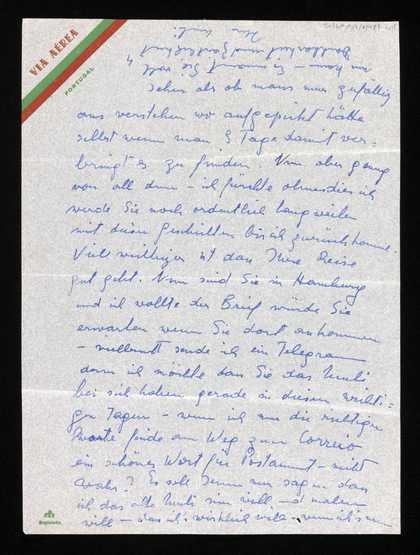 VIA AÉREA
PORTUGAL
sehen als ob man's nur zufällig
aus verstehen wo aufgepickt hätte
selbst wenn man 3 Tage damit ver-
bringt es zu finden. Nun aber genug
von all dem – ich fürchte ohnedies ich
werde Sie noch ordentlich langweilen
mit diesen Geschichten bis ich zurückkomme.
Viel wichtiger ist dass Ihre Reise
gut geht. Nun sind Sie in Hamburg
und ich wollte der Brief würde Sie
erwarten wenn Sie dort ankommen
– vielleicht sende ich ein Telegram
denn ich möchte dass Sie das
bei sich haben gerade in diesen wichti-
gen Tagen – wenn ich nur die richtigen
Worte finde am Weg zum Correio
ein schönes Wort für Postamt – nicht
wahr? Es soll Ihnen nur sagen dass
ich das alte sein will
will – was ich wirklich will